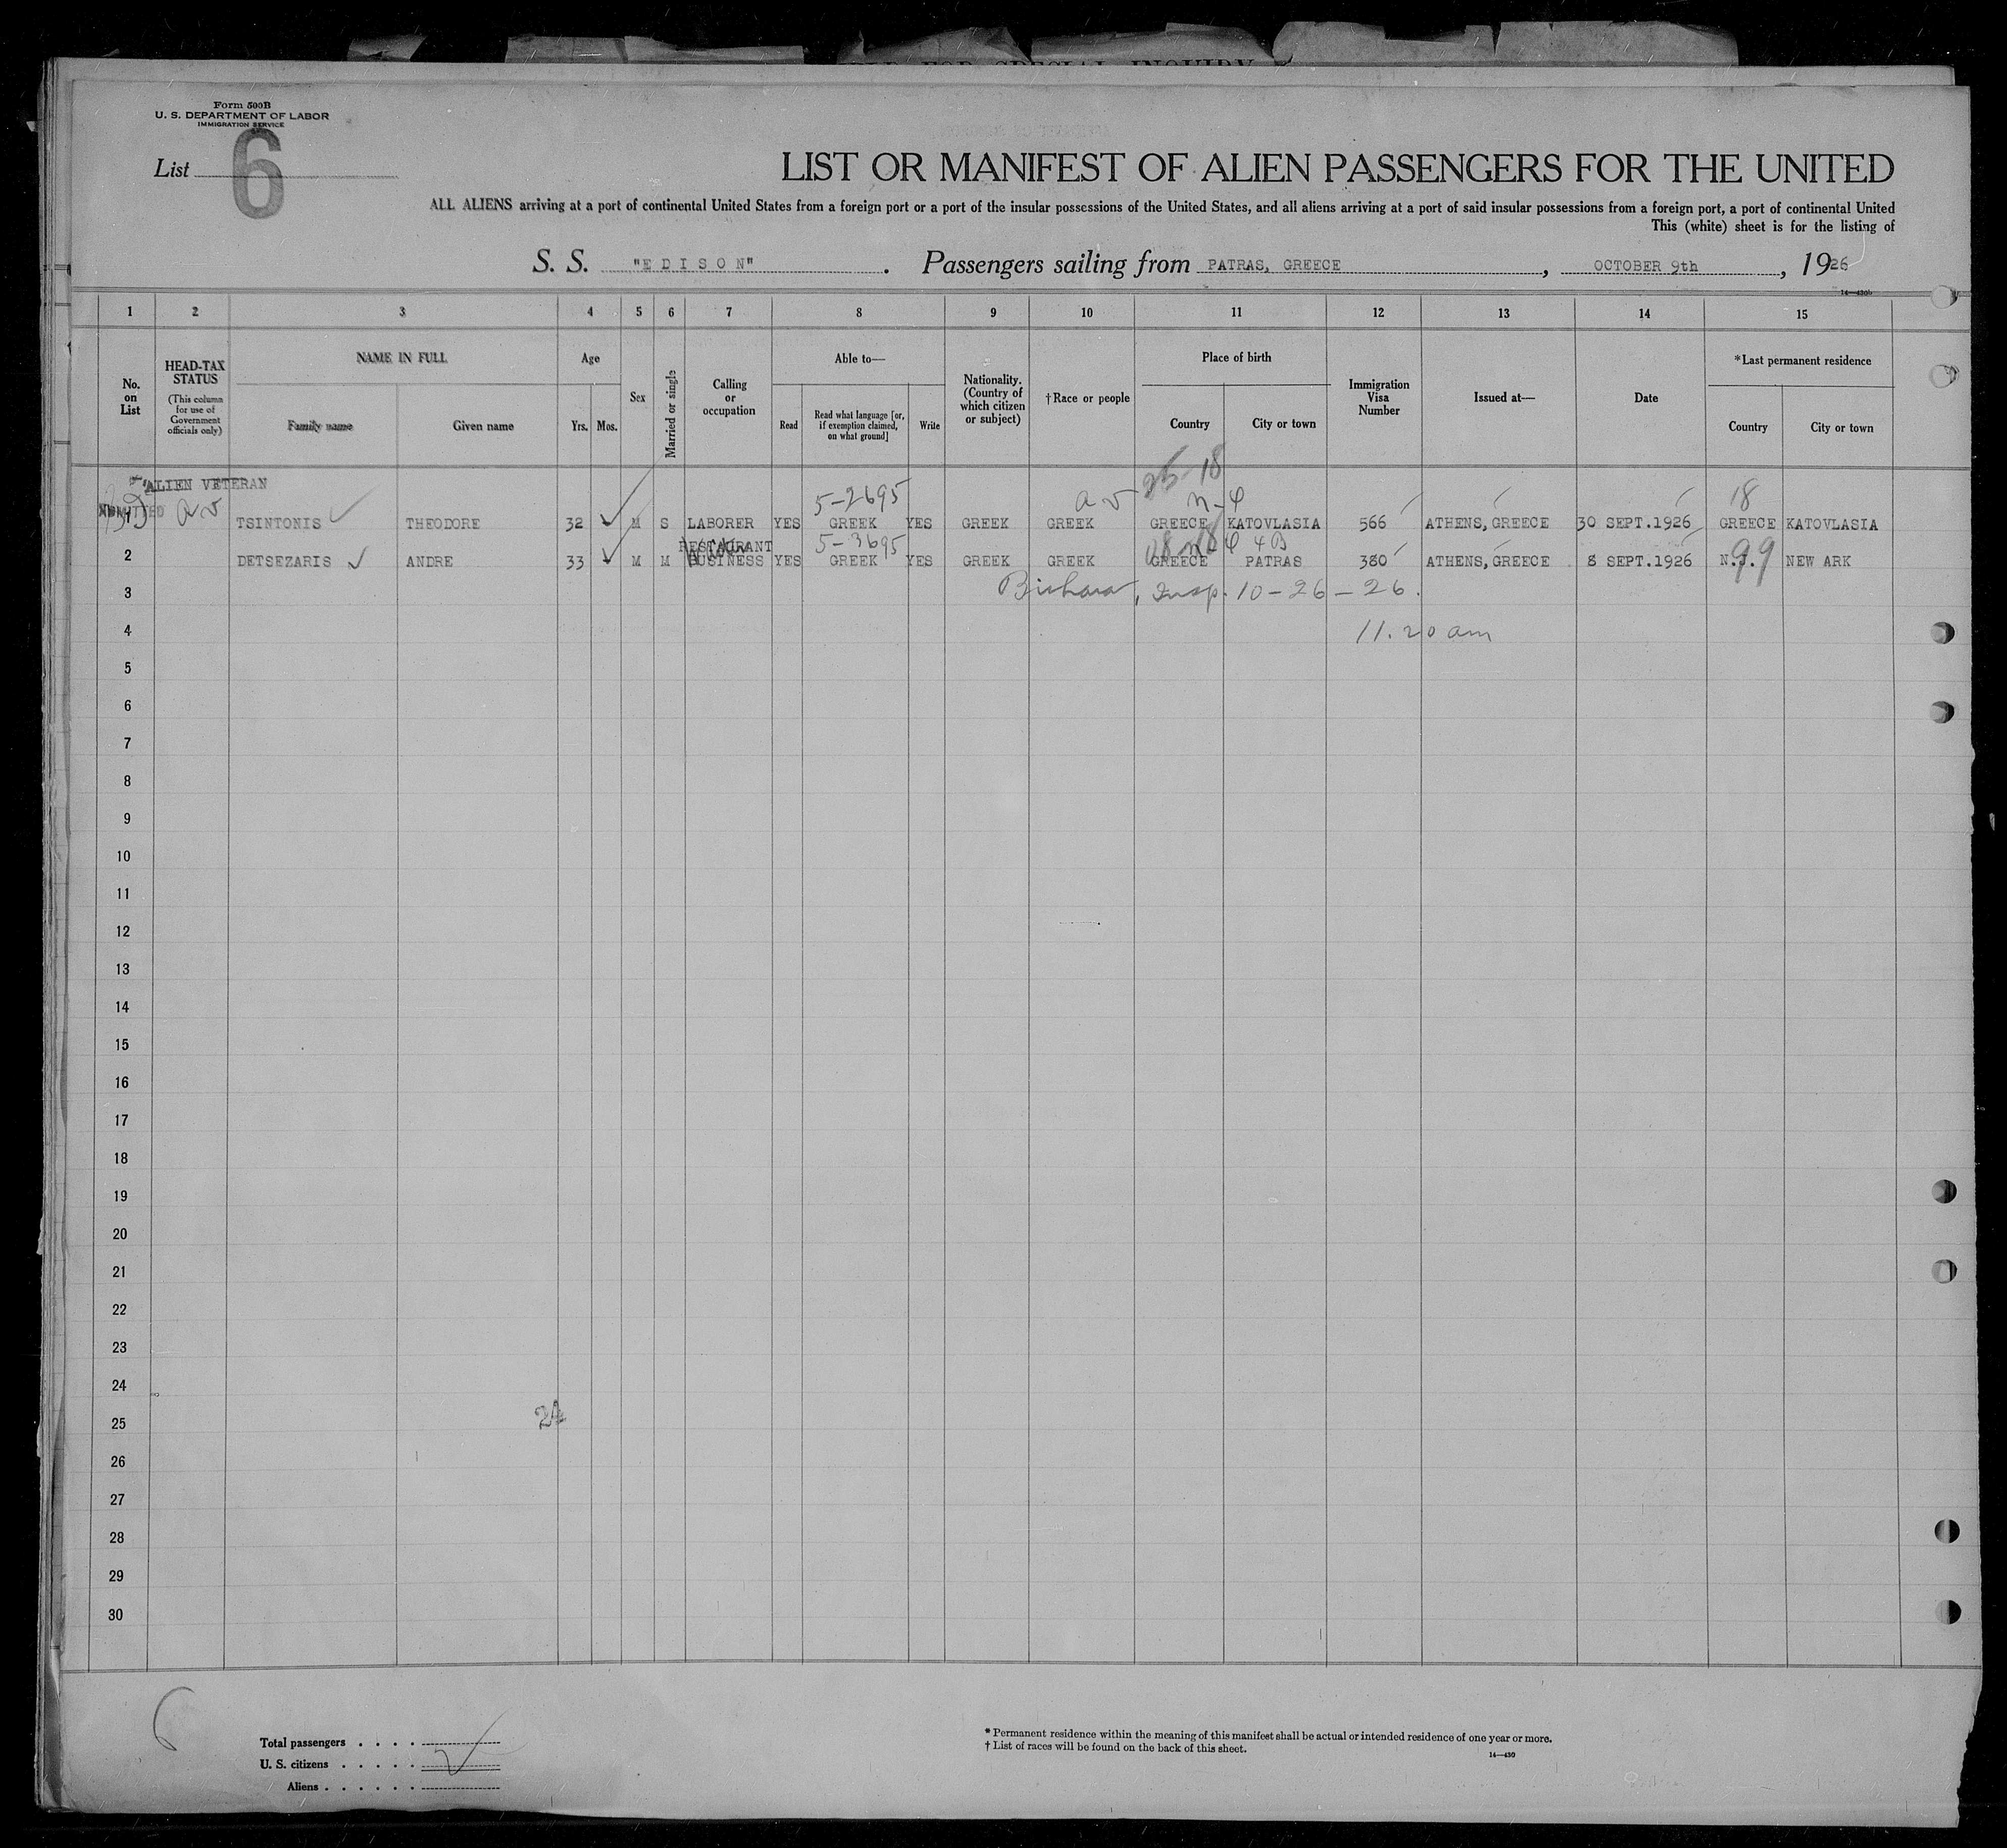 FOR SPECIAL INQUIRY
Form 500B
U. S. DEPARTMENT OF LABOR
IMMIGRATION SERVICE
List 6
LIST OR MANIFEST OF ALIEN PASSENGERS FOR THE UNITED
ALL ALIENS arriving at a port of continental United States from a foreign port or a port of the insular possessions of the United States, and all aliens arriving at a port of said insular possessions from a foreign port, a port of continental United
This (white) sheet is for the listing of
S. S. "EDISON". Passengers sailing from PATRAS, GREECE, OCTOBER 9th, 1926
14—430
1 2 3 4 5 6 7 8 9 10 11 12 13 14 15
No. on List
HEAD-TAX STATUS
(This column for use of Government officials only)
NAME IN FULL
Family name
Given name
Age
Yrs. Mos.
Sex
Married or single
Calling or occupation
Able to—
Read
Read what language [or, if exemption claimed, on what ground]
Write
Nationality. (Country of which citizen or subject)
†Race or people
Place of birth
Country
City or town
Immigration Visa Number
Issued at—
Date
*Last permanent residence
Country
City or town
25-18
ALIEN VETERAN 5-2695 a v n-4 18
ADMITTED
1 a v TSINTONIS THEODORE 32 M S LABORER YES GREEK YES GREEK GREEK GREECE KATOVLASIA 566 ATHENS, GREECE 30 SEPT.1926 GREECE KATOVLASIA
RESTAURANT 5-3695 4B 99
2 DETSEZARIS ANDRE 33 M M BUSINESS YES GREEK YES GREEK GREEK GREECE PATRAS 380 ATHENS, GREECE 8 SEPT.1926 N.J. NEW ARK
3 Insp. 10-26-26.
4 11.20 am
5
6
7
8
9
10
11
12
13
14
15
16
17
18
19
20
21
22
23
24
25 24
26
27
28
29
30
Total passengers . . . .
U. S. citizens . . . . .
Aliens . . . . . .
* Permanent residence within the meaning of this manifest shall be actual or intended residence of one year or more.
† List of races will be found on the back of this sheet.
14—430